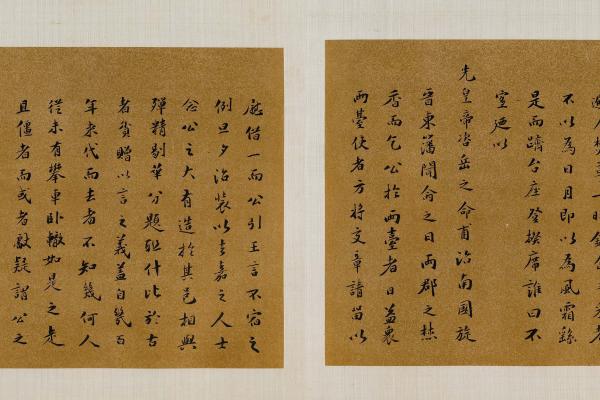 不以為日月即以為風霜繇
是而躋台座登揆席誰曰不
宜迺以
先皇帝咨岳之命甫治南國旋
晉東藩聞命之日兩郡之焚
香而乞公於兩臺者日益衆
兩臺使者方將交章請留以
慰借一而公引王言不宿之
例旦夕治裝以去嘉之人士
念公之大有造於其邑相與
殫精剔華分題聯什比於古
者貧贈以言之義蓋自幾百
年来代而去者不知幾何人
從未有攀車卧轍如是之走
且僵者而或者獻疑謂公之